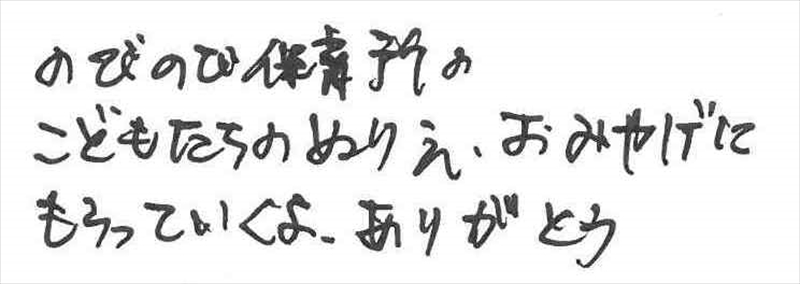 のびのび保育所の
こどもたちのぬりえ、おみやげに
もらっていくよ。ありがとう